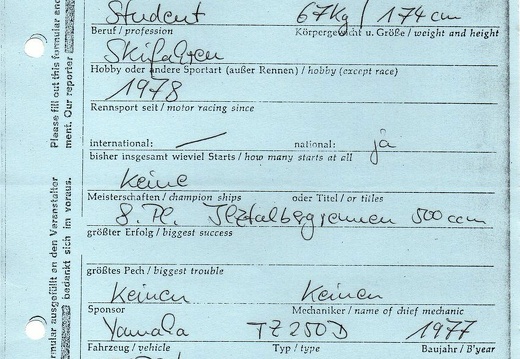 Student 67kg / 174 cm
Beruf / profession Körpergewicht u. Größe / weight and height
Skifahren
Hobby oder andere Sportart (außer Rennen) / hobby (except race)
1978
Rennsport seit / motor racing since
international: — national: ja
bisher insgesamt wieviel Starts / how many starts at all
Keine
Meisterschaften / champion ships oder Titel / or titles
8. Pl. Ilztalbergrennen 500 ccm
größter Erfolg / biggest success
größtes Pech / biggest trouble
Keinen Keinen
Sponsor Mechaniker / name of chief mechanic
Yamaha TZ 250 D 1977
Fahrzeug / vehicle Typ / type Baujahr / B'year
Please fill out this formular and
ment. Our reporter
mular ausgefüllt an den Veranstalter
bedankt sich im voraus.